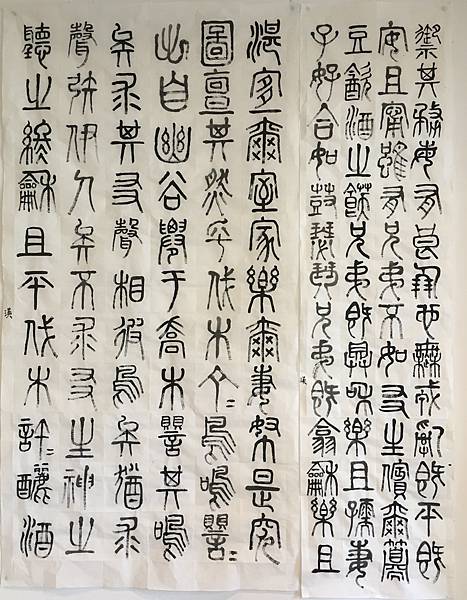 禦其務每有良朋烝也無戎喪亂既平既
安且寧雖有兄弟不如友生儐爾籩
豆飲酒之飫兄弟既具和樂且孺妻
子好合如鼓瑟琴兄弟既翕龢樂且
湛宜爾室家樂爾妻帑是究
圖亶其然乎伐木丁=鳥鳴嚶=
出自幽谷遷于喬木嚶其鳴
矣求其友聲相彼鳥矣猶求友
聲矧伊人矣不求友生神之
聽之終龢且平伐木許=釃酒